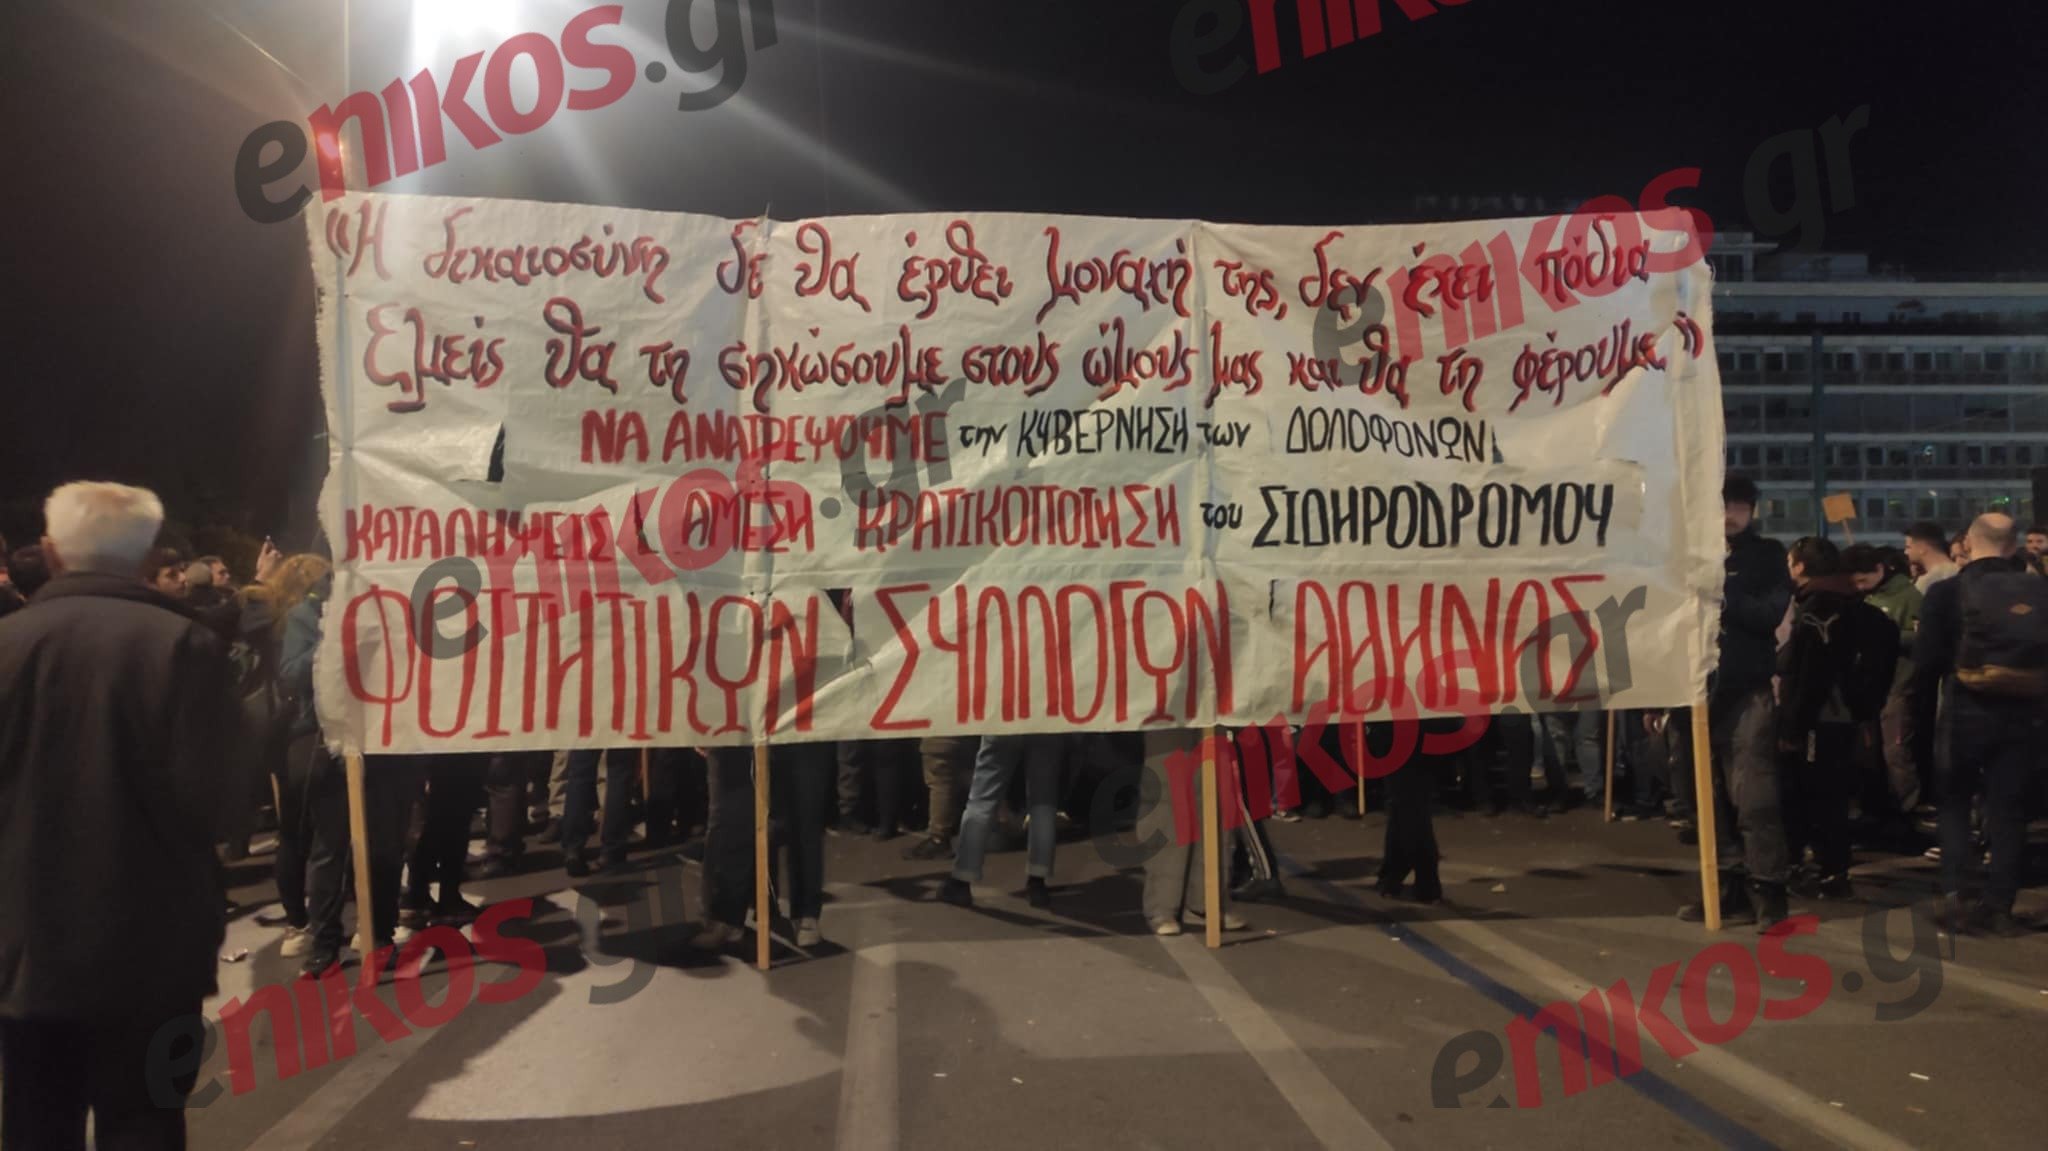 «Η δικαιοσύνη δε θα έρθει μοναχή της, δεν έχει πόδια
Εμείς θα τη σηκώσουμε στους ώμους μας και θα τη φέρουμε»
ΝΑ ΑΝΑΤΡΕΨΟΥΜΕ την ΚΥΒΕΡΝΗΣΗ των ΔΟΛΟΦΟΝΩΝ
ΚΑΤΑΛΗΨΕΙΣ ΑΜΕΣΗ ΚΡΑΤΙΚΟΠΟΙΗΣΗ του ΣΙΔΗΡΟΔΡΟΜΟΥ
ΦΟΙΤΗΤΙΚΩΝ ΣΥΛΛΟΓΩΝ ΑΘΗΝΑΣ
enikos.gr
enikos
enikos.gr
enikos.gr
enikos.gr
enikos.gr
enikos.gr